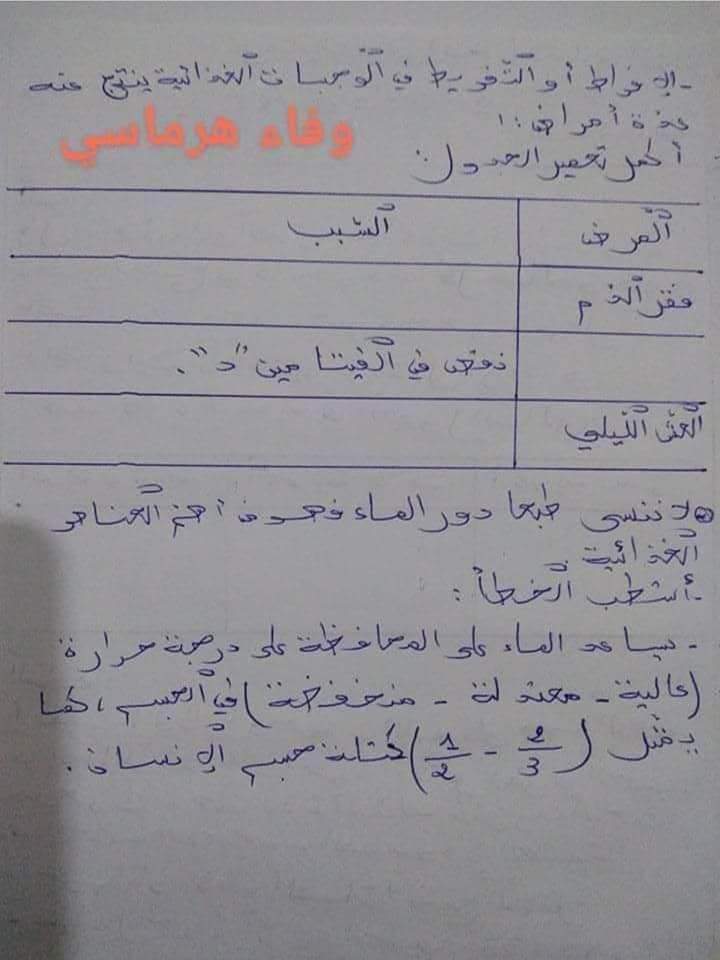 - الإفراط أو التّفريط في الوجبات الغذائية ينتج عنه
عدّة أمراض :
وفاء هرماسي
أكمل تعمير الجدول :
المرض السّبب
فقر الدّم
نقص في الفيتامين "د".
العشى اللّيلي
لا ننسى طبعا دور الماء فهو من أهم العناصر
الغذائية.
- أشطب الخطأ :
- يساعد الماء على المحافظة على درجة حرارة
(عالية - معتدلة - منخفضة) في الجسم، كما
يمثّل (2/3 - 1/2) كتلة جسم الإنسان.